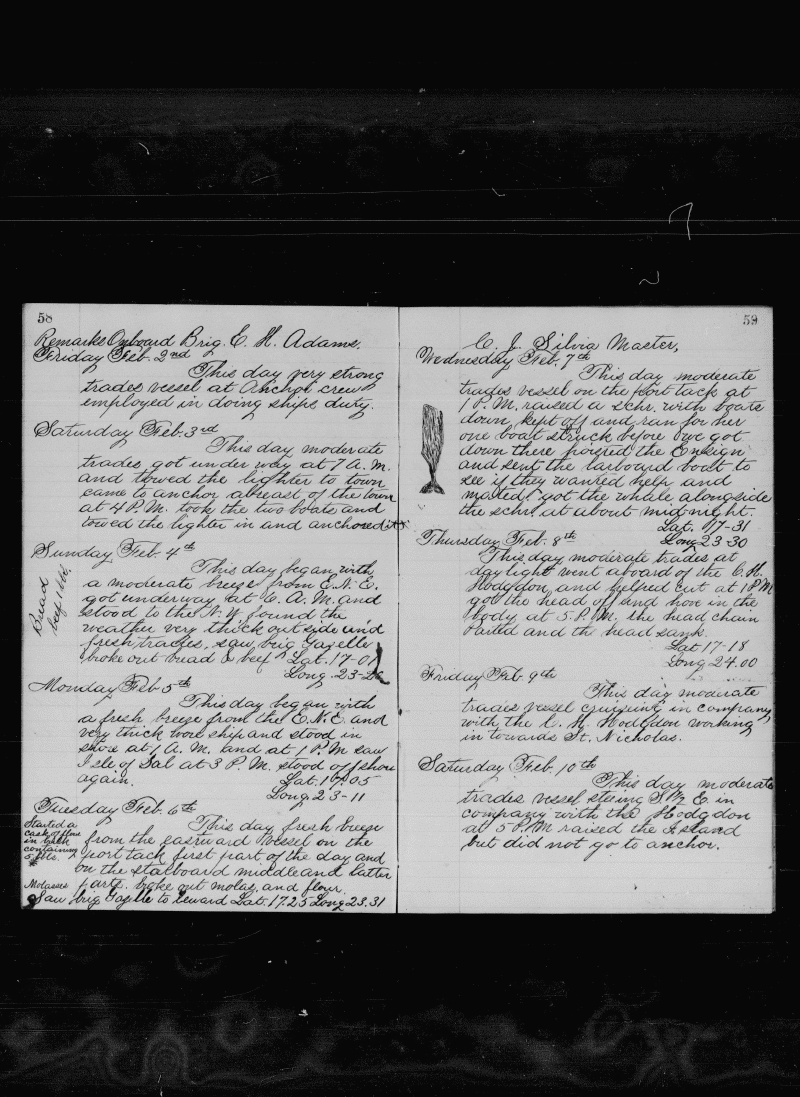 58
Remarks Onboard Brig. E. H. Adams.
Friday Feb. 2nd
This day very strong
trades vessel at Anchor crew
employed in doing ships duty.
Saturday Feb. 3rd
This day moderate
trades got under way at 7 A.M.
and towed the lighter to town
came to anchor abreast of the town
at 4 P.M. took the two boats and
towed the lighter in and anchored it
Sunday Feb. 4th
Bread
beef 1 bbl.
This day began with
a moderate breeze from E.N.E.
got underway at 6 A.M. and
stood to the N.W. found the
weather very thick outside and
fresh trades, saw brig Gazelle
broke out bread & beef Lat. 17-01
Long. 23-26
Monday Feb 5th
This day began with
a fresh breeze from the E.N.E. and
very thick wore ship and stood in
shore at 1 A.M. and at 1 P.M saw
Isle of Sal at 3 P.M. stood off shore
again. Lat. 17-05
Long 23-11
Tuesday Feb. 6th
Started a
cask of flour
in
containing
5 bbls.
This day fresh breeze
from the eastward vessel on the
port tack first part of the day and
on the starboard middle and latter
Molasses
part. broke out molas. and flour.
Saw brig Gazelle to leward Lat. 17.25 Long 23.31
59
C. J. Silvia Master,
Wednesday Feb. 7th
This day moderate
trades vessel on the port tack at
1 P.M. raised a schr. with boats
down, kept off and ran for her
one boat struck before we got
down there hoisted the Ensign
and sent the larboard boat to
see if they wanted help and
mated. got the whale alongside
the schr. at about midnight.
Lat. 17-31
Long 23-30
Thursday Feb. 8th
This day moderate trades at
daylight went aboard of the C. H.
Hodgdon and helped cut at 1 P.M
got the head off and hove in the
body at 5 P.M. the head chain
parted and the head sank.
Lat 17-18
Long 24.00
Friday Feb. 9th
This day moderate
trades vessel cruising in company
with the C. H. Hodgdon working
in towards St. Nicholas.
Saturday Feb. 10th
This day moderate
trades vessel steering S 1/2 E. in
company with the Hodgdon
at 5 P.M raised the Island
but did not go to anchor.